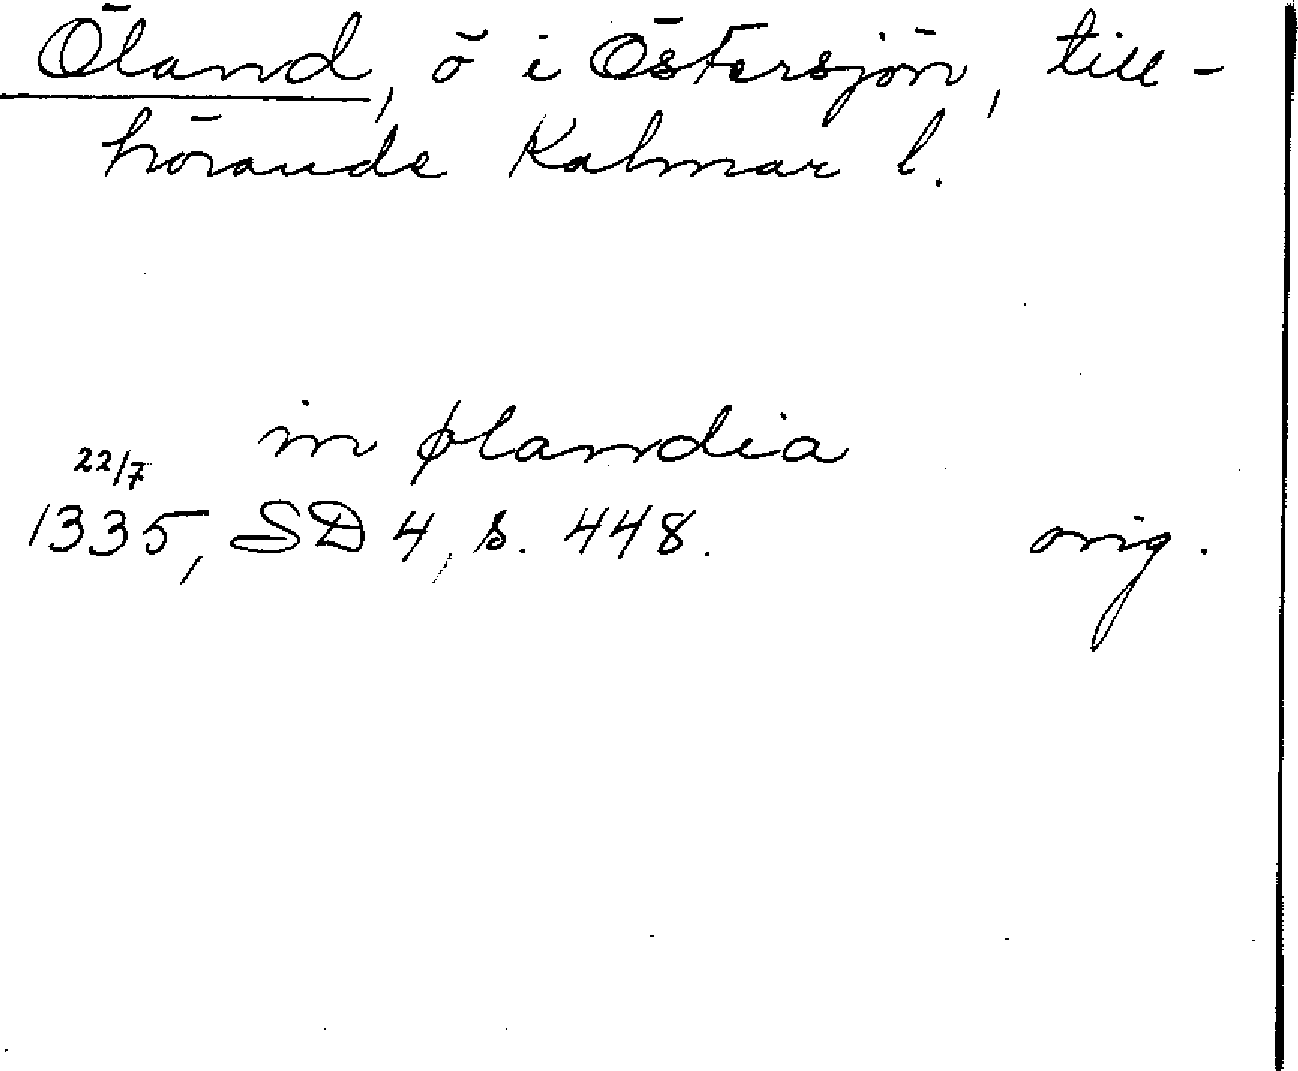 Öland, ö i Östersjön, till-
hörande Kalmar l.
in ølandia
22/7
1335, SD 4, s. 448. orig.